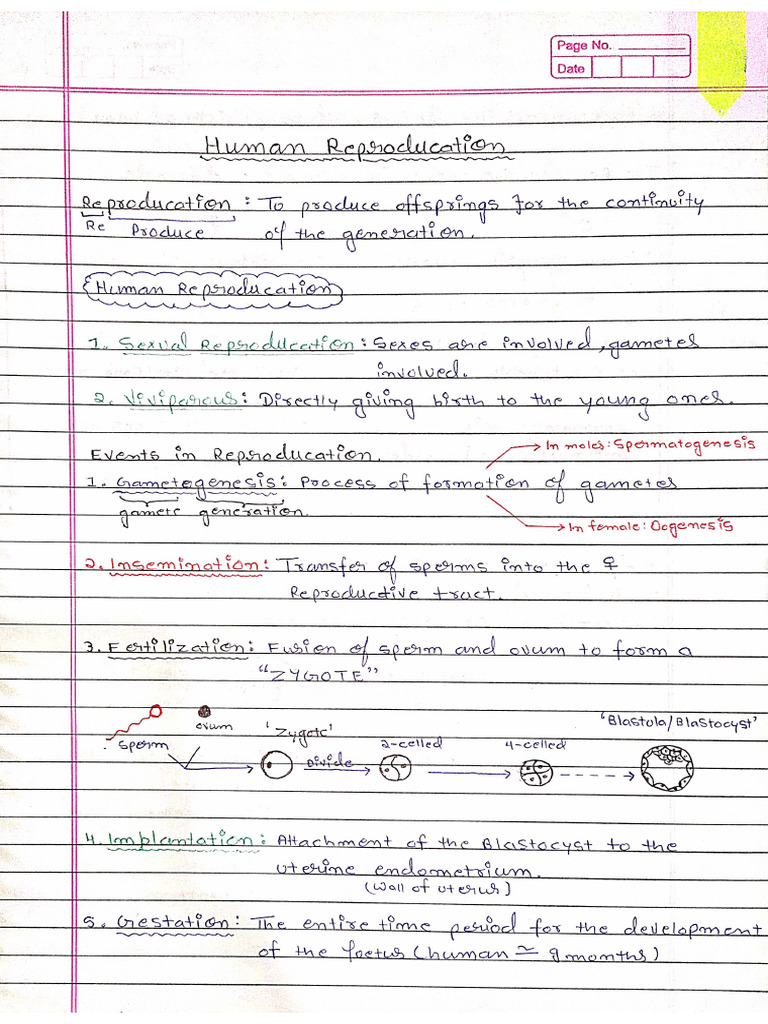 Page No.
Date
Human Reproducation
Reproducation : To produce offsprings for the continuity
Re Produce of the generation.
Human Reproducation
1. Sexual Reproducation : Sexes are involved, gametes
involved.
2. Viviparous : Directly giving birth to the young ones.
Events in Reproducation.
→ In males : Spermatogenesis
1. Gametogenesis : Process of formation of gametes
gamete generation.
→ In female : Oogenesis
2. Insemination : Transfer of sperms into the ♀
Reproductive tract.
3. Fertilization : Fusion of sperm and ovum to form a
"ZYGOTE"
sperm
ovum
'Zygote'
Divide
2-celled
4-celled
'Blastula/Blastocyst'
4. Implantation : Attachment of the Blastocyst to the
uterine endometrium.
(wall of uterus)
5. Gestation : The entire time period for the development
of the foetus (human ≃ 9 months)